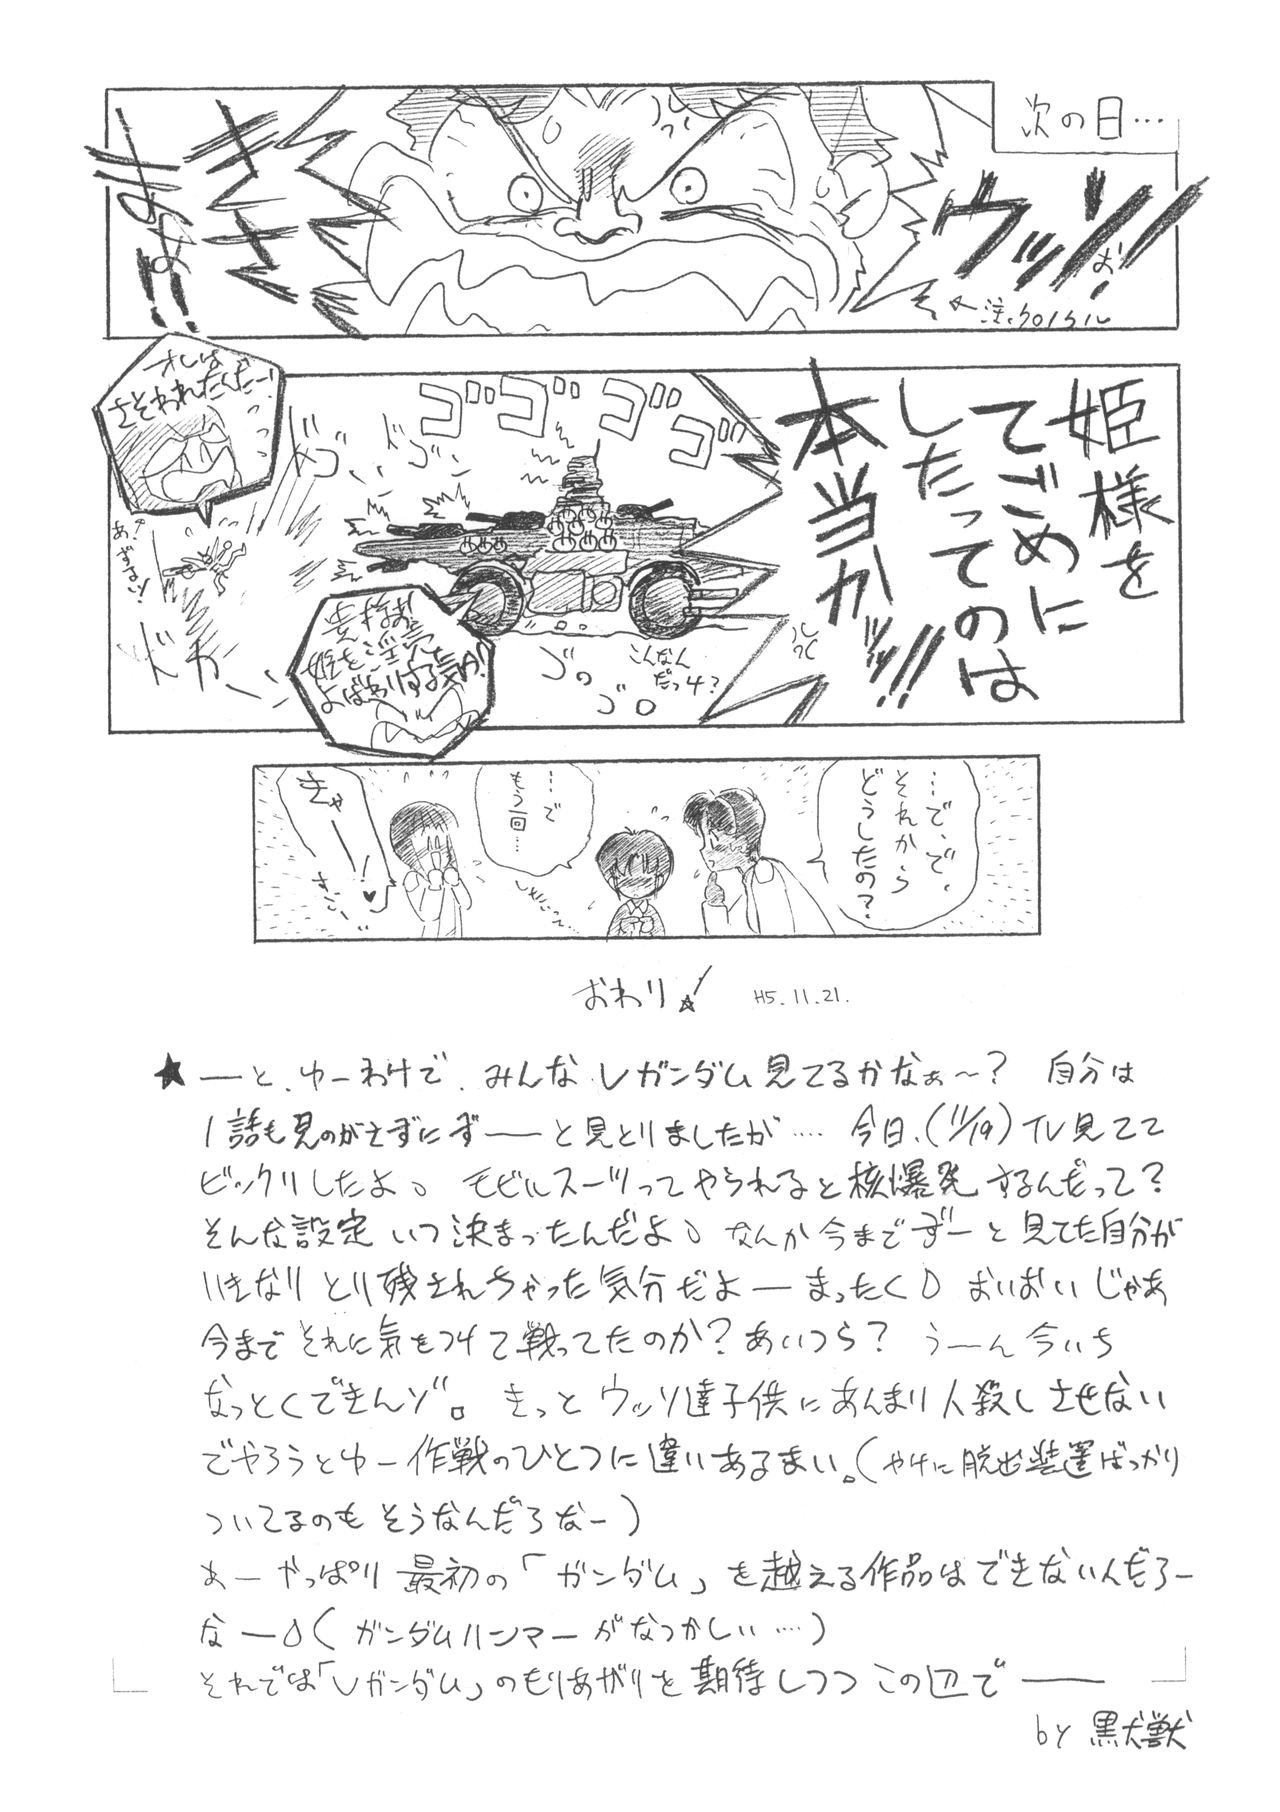 次の日…
ウッソ!!
きさまぁ!!
注、クロノクル
姫様を
てごめに
したってのは
本当かッ!!!
ゴゴゴゴ
オレは
さそわれたんだー!
ドゴ
ドゴ
ドカ
ゴロ
ゴロ
こんなん
だっけ?
貴様ぁ!
姫を淫売
よばわりする気か!?
…で、で、
それから
どうしたの?
…で
もう一回…
きゃー!
おわり!
H5.11.21.
★ーと、ゆーわけで、みんなVガンダム見てるかなぁ～? 自分は
1話も見のがさずにずーーと見とりましたが…. 今日、(11/19)TV見てて
ビックリしたよ。モビルスーツってやられると核爆発するんだって?
そんな設定いつ決まったんだよ。なんか今までずーと見てた自分が
いきなりとり残されちゃった気分だよーまったく。おいおいじゃあ
今までそれに気をつけて戦ってたのか?あいつら? うーん今いち
なっとくできんゾ。きっとウッソ達子供にあんまり人殺しさせない
でやろうとゆー作戦のひとつに違いあるまい。(やけに脱出装置ばっかり
ついてるのもそうなんだろなー)
あーやっぱり最初の「ガンダム」を越える作品はできないんだろー
なー。(ガンダムハンマーがなつかしい…)
それでは「Vガンダム」のもりあがりを期待しつつこの辺でーー
by 黒犬獣